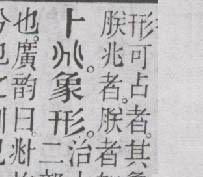 形可占者。其
朕兆者。朕者
卜兆象形。
治
二
也。廣韵曰。𠧞